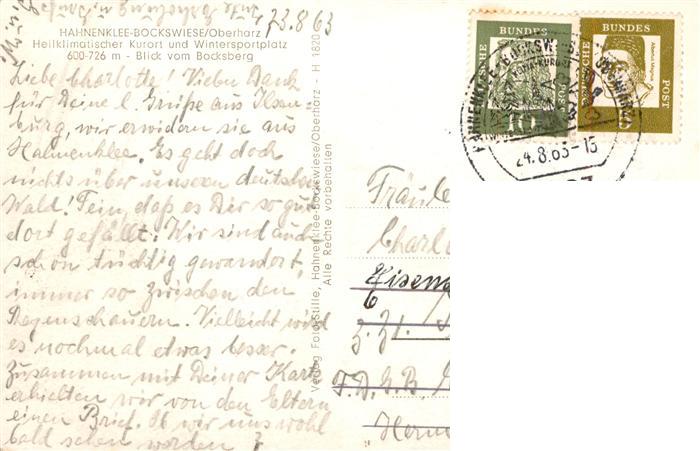 23.8.63
HAHNENKLEE-BOCKSWIESE/Oberharz
Heilklimatischer Kurort und Wintersportplatz
600-726 m - Blick vom Bocksberg
Liebe Charlotte! Vielen Dank
für Deine l. Grüße aus Ilsen-
burg, wir erwidern sie aus
Hahnenklee. Es geht doch
nichts über unseren deutschen
Wald! Fein, daß es Dir so gut
dort gefällt. Wir sind auch
schon tüchtig gewandert,
immer so zwischen den
Regenschauern. Vielleicht wird
es nochmal etwas besser.
Zusammen mit Deiner Karte
erhielten wir von den Eltern
einen Brief. Ob wir uns wohl
bald sehen werden?
Verlag Foto-Stille, Hahnenklee-Bockswiese/Oberharz - H 1820
Alle Rechte vorbehalten
DEUTSCHE BUNDESPOST
10
DEUTSCHE BUNDESPOST
Albertus Magnus
HAHNENKLEE-BOCKSWIESE
24.8.63-15
Fräule
Charlo
Eisen
6
z. Zt.
F.D.G.B.